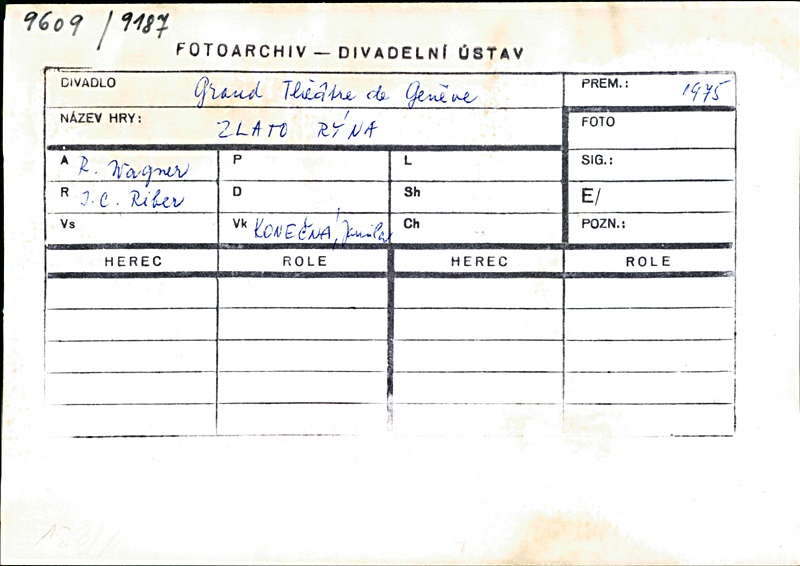 9609 / 9187
FOTOARCHIV — DIVADELNÍ ÚSTAV
DIVADLO Grand Théâtre de Genève PREM.: 1975
NÁZEV HRY: ZLATO RÝNA FOTO
A R. Wagner P L SIG.:
R J.C. Riber D Sh E/
Vs Vk KONEČNÁ, Jarmila Ch POZN.:
HEREC ROLE HEREC ROLE